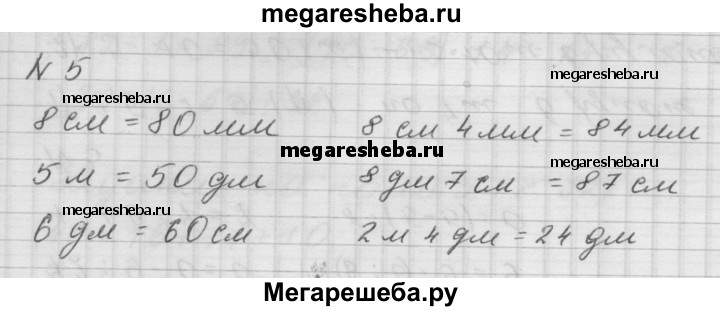 megaresheba.ru
N 5
megaresheba.ru
megaresheba.ru
8 см = 80 мм 8 см 4 мм = 84 мм
megaresheba.ru
5 м = 50 дм 8 дм 7 см = 87 см
megaresheba.ru
6 дм = 60 см 2 м 4 дм = 24 дм
Мегарешеба.ру